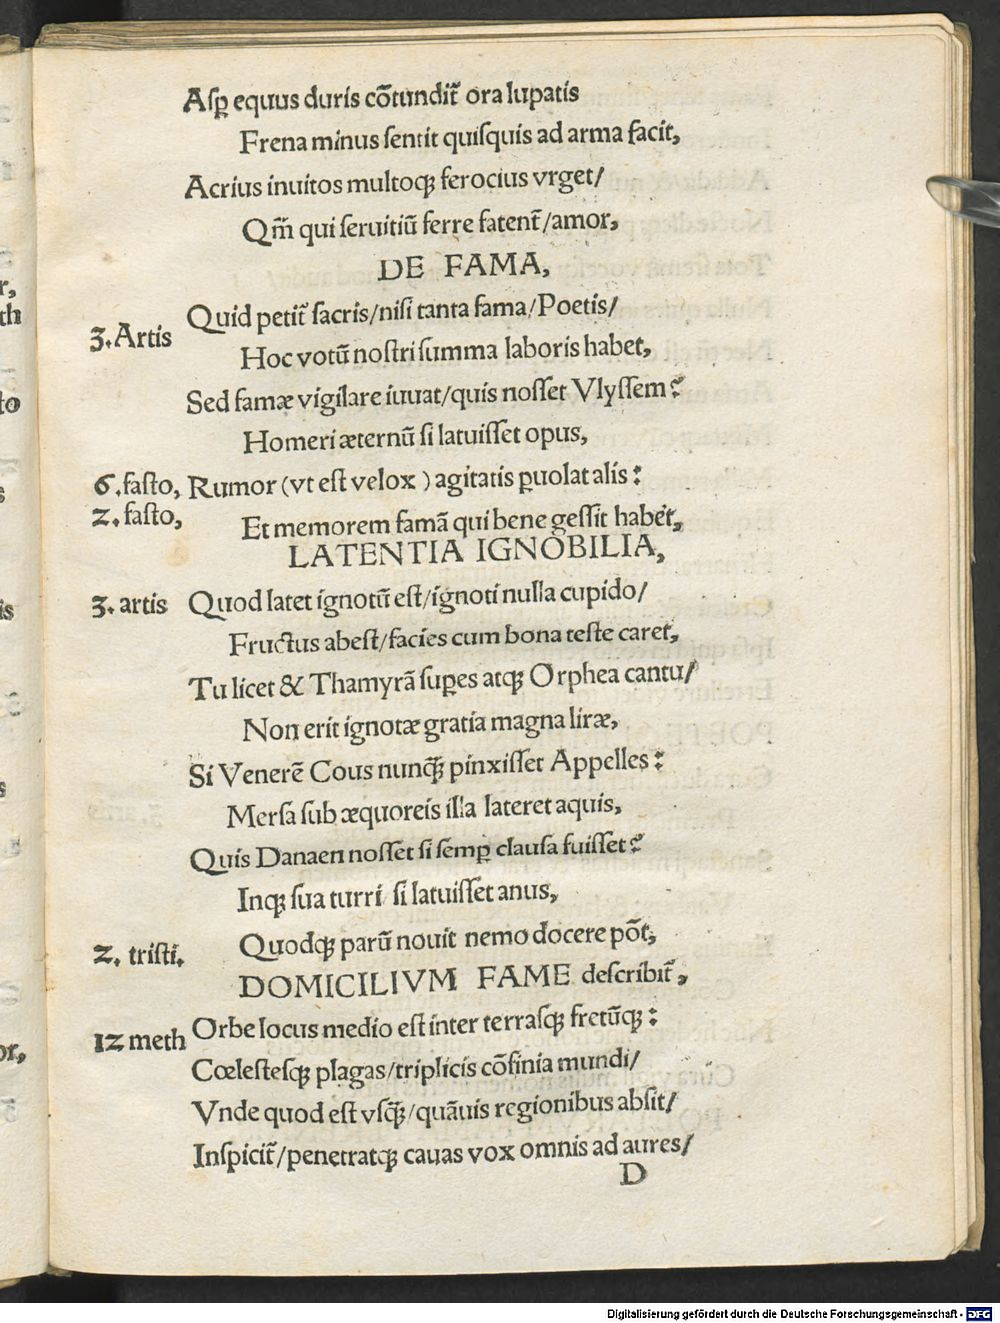 Aſꝑ equus duris cōtundit̃ ora lupatis
Frena minus ſentit quiſquis ad arma facit,
Acrius inuitos multoqꝫ ferocius vrget/
Qm̃ qui ſeruitiū ferre fatent̃/amor,
DE FAMA,
Quid petit̃ ſacris/niſi tanta fama/Poetis/
3.Artis
Hoc votū noſtri ſumma laboris habet,
Sed famæ vigilare iuuat/quis noſſet Vlyſſem:
Homeri æternū ſi latuiſſet opus,
6.faſto, Rumor (vt eſt velox) agitatis ꝑuolat alis:
2. faſto, Et memorem famā qui bene geſſit habet,
LATENTIA IGNOBILIA,
3. artis Quod latet ignotū eſt/ignoti nulla cupido/
Fructus abeſt/facies cum bona teſte caret,
Tu licet & Thamyrā ſuꝑes atqꝫ Orphea cantu/
Non erit ignotæ gratia magna liræ,
Si Venerē Cous nunqꝫ̃ pinxiſſet Appelles:
Merſa ſub æquoreis illa lateret aquis,
Quis Danaen noſſet ſi ſemꝑ clauſa fuiſſet:
Inqꝫ ſua turri ſi latuiſſet anus,
2. triſti. Quodqꝫ parū nouit nemo docere põt,
DOMICILIVM FAME deſcribit̃,
12 meth Orbe locus medio eſt inter terraſqꝫ fretūqꝫ:
Cœleſteſqꝫ plagas/triplicis cōfinia mundi/
Vnde quod eſt vſqꝫ̃/quāuis regionibus abſit/
Inſpicit̃/penetratqꝫ cauas vox omnis ad aures/
D
Digitalisierung gefördert durch die Deutsche Forschungsgemeinschaft - DFG